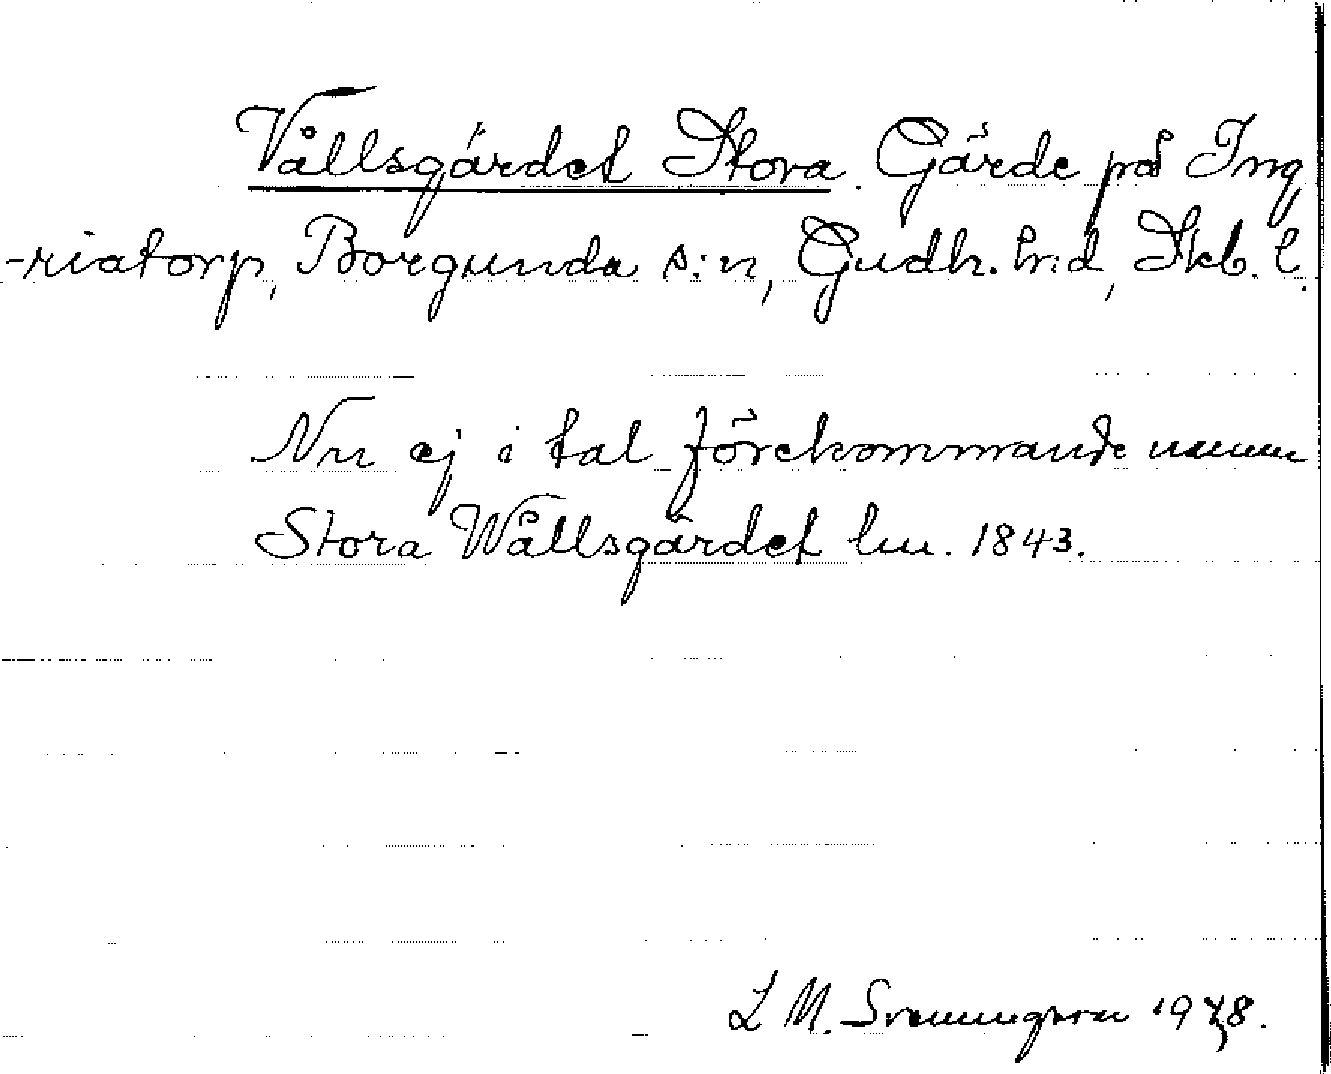 Vållsgärdet Stora. Gärde på Ing
-riatorp, Borgunda s:n, Gudh. h:d, Skb. l.
Nu ej i tal förekommande namn
Stora Wållsgärdet lm. 1843.
L M. Svenungsson